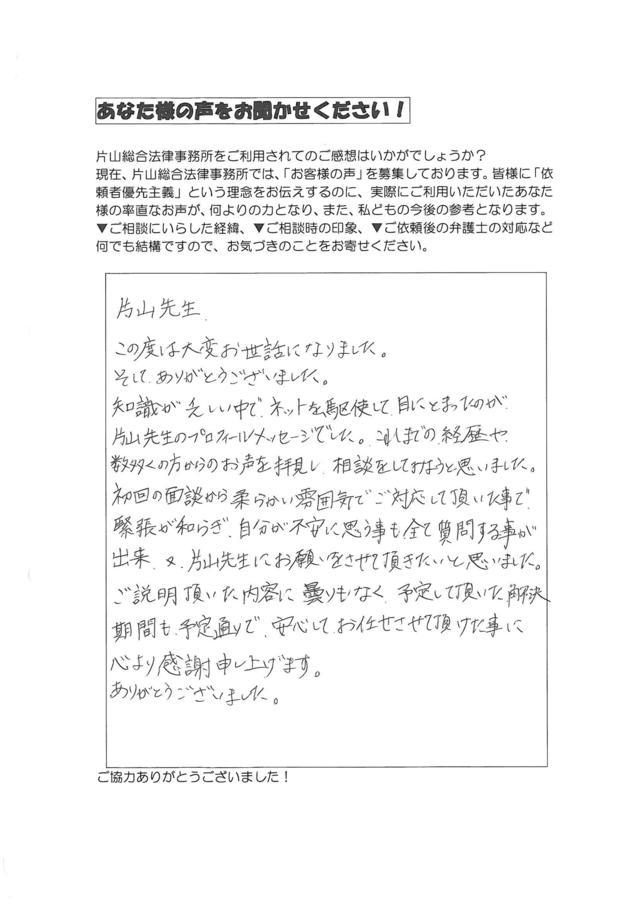 あなた様の声をお聞かせください！
片山総合法律事務所をご利用されてのご感想はいかがでしょうか？
現在、片山総合法律事務所では、「お客様の声」を募集しております。皆様に「依
頼者優先主義」という理念をお伝えするのに、実際にご利用いただいたあなた
様の率直なお声が、何よりの力となり、また、私どもの今後の参考となります。
▼ご相談にいらした経緯、▼ご相談時の印象、▼ご依頼後の弁護士の対応など
何でも結構ですので、お気づきのことをお寄せください。
片山先生
この度は大変お世話になりました。
そして、ありがとうございました。
知識が乏しい中で、ネットを駆使して、目にとまったのが
片山先生のプロフィールメッセージでした。これまでの経歴や
数多くの方からのお声を拝見し、相談をしてみようと思いました。
初回の面談から柔らかい雰囲気でご対応して頂いた事で
緊張が和らぎ、自分が不安に思う事も全て質問する事が
出来、又、片山先生にお願いをさせて頂きたいと思いました。
ご説明頂いた内容に曇りもなく、予定して頂いた解決
期間も、予定通りで、安心して、お任せさせて頂けた事に
心より感謝申し上げます。
ありがとうございました。
ご協力ありがとうございました！